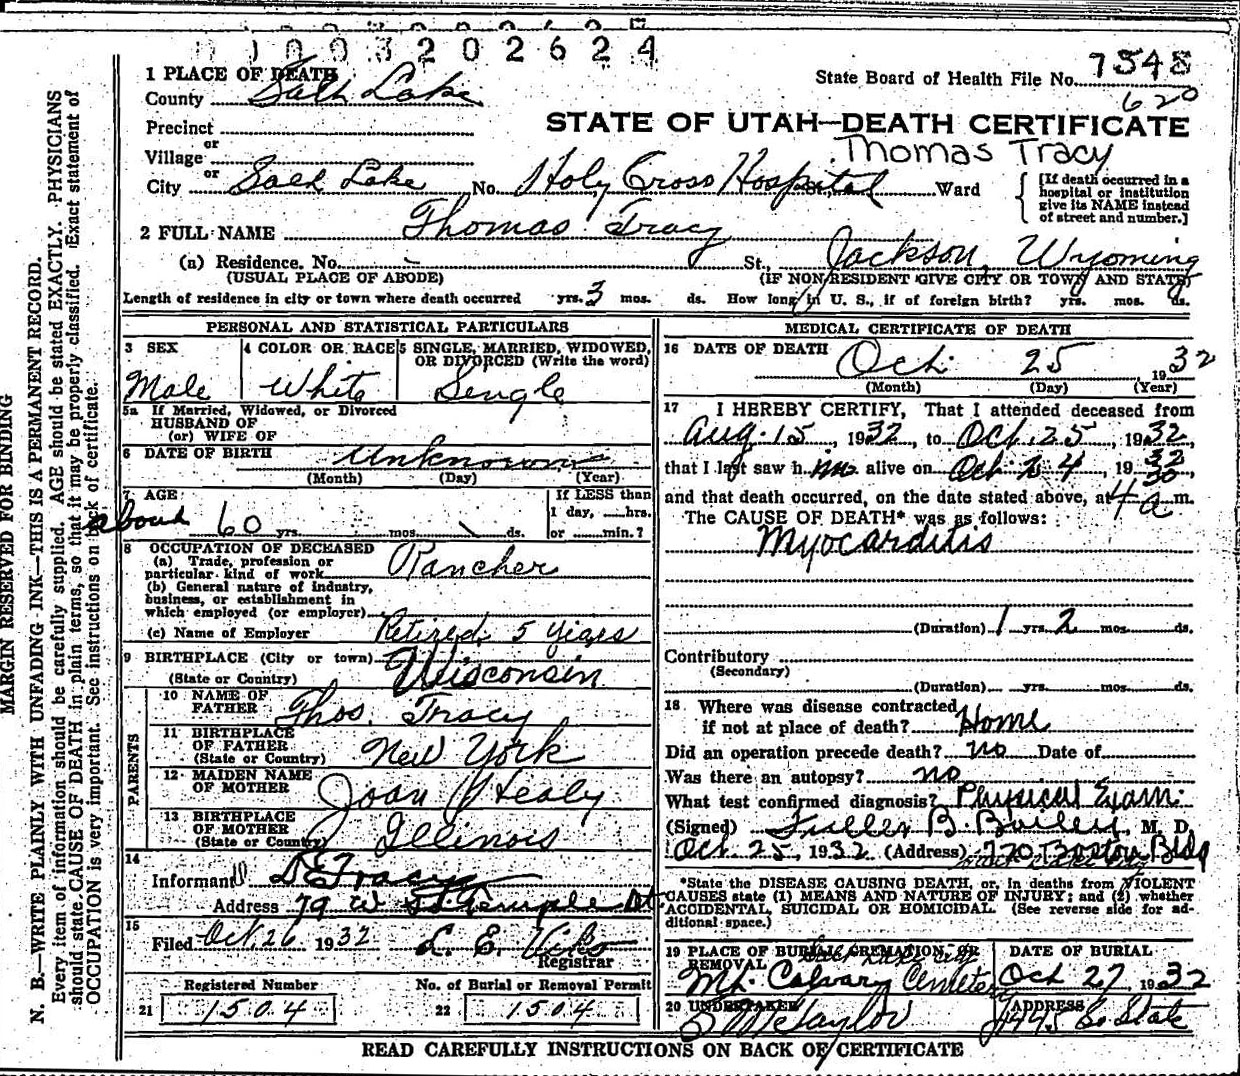 11009320 2624
1 PLACE OF DEATH
County Salt Lake
State Board of Health File No. 7548
620
Precinct
STATE OF UTAH—DEATH CERTIFICATE
or
Village
Thomas Tracy
or
City Salt Lake No. Holy Cross Hospital Ward
[If death occurred in a hospital or institution give its NAME instead of street and number.]
2 FULL NAME Thomas Tracy
(a) Residence. No. St., Jackson, Wyoming
(USUAL PLACE OF ABODE) (IF NON RESIDENT GIVE CITY OR TOWN AND STATE)
Length of residence in city or town where death occurred yrs. 3 mos. ds. How long in U. S., if of foreign birth? yrs. mos. ds.
PERSONAL AND STATISTICAL PARTICULARS
3 SEX
Male
4 COLOR OR RACE
White
5 SINGLE, MARRIED, WIDOWED, OR DIVORCED (Write the word)
Single
5a If Married, Widowed, or Divorced
HUSBAND OF
(or) WIFE OF
6 DATE OF BIRTH Unknown
(Month) (Day) (Year)
7 AGE
about 60 yrs. mos. ds.
If LESS than
1 day, hrs.
or min.?
8 OCCUPATION OF DECEASED
(a) Trade, profession or
particular kind of work Rancher
(b) General nature of industry,
business, or establishment in
which employed (or employer)
(c) Name of Employer Retired 5 years
9 BIRTHPLACE (City or town)
(State or Country) Wisconsin
PARENTS
10 NAME OF
FATHER Thos. Tracy
11 BIRTHPLACE
OF FATHER New York
(State or Country)
12 MAIDEN NAME
OF MOTHER Joan Healy
13 BIRTHPLACE
OF MOTHER Illinois
(State or Country)
14
Informant D E Tracy
Address 79 W So. Temple St
15
Filed Oct. 26 1932 L. E. Viko
Registrar
Registered Number
21 1504
No. of Burial or Removal Permit
22 1504
MEDICAL CERTIFICATE OF DEATH
16 DATE OF DEATH Oct. 25 1932
(Month) (Day) (Year)
17 I HEREBY CERTIFY, That I attended deceased from
Aug. 15, 1932, to Oct. 25, 1932,
that I last saw him alive on Oct. 24, 1932,
and that death occurred, on the date stated above, at 4 a m.
The CAUSE OF DEATH* was as follows:
Myocarditis
(Duration) 1 yrs. 2 mos. ds.
Contributory
(Secondary)
(Duration) yrs. mos. ds.
18 Where was disease contracted
if not at place of death? Home
Did an operation precede death? no Date of
Was there an autopsy? no
What test confirmed diagnosis? Physical Exam.
(Signed) Fuller B. Bailey, M. D.
Oct. 25, 1932 (Address) 720 Boston Bldg
*State the DISEASE CAUSING DEATH, or, in deaths from VIOLENT
CAUSES state (1) MEANS AND NATURE OF INJURY; and (2) whether
ACCIDENTAL, SUICIDAL OR HOMICIDAL. (See reverse side for ad-
ditional space.)
19 PLACE OF BURIAL, CREMATION, OR
REMOVAL
Salt Lake City
Mt. Calvary Cemetery
DATE OF BURIAL
Oct 27, 1932
20 UNDERTAKER
ADDRESS
So State
READ CAREFULLY INSTRUCTIONS ON BACK OF CERTIFICATE
MARGIN RESERVED FOR BINDING
N. B.—WRITE PLAINLY WITH UNFADING INK—THIS IS A PERMANENT RECORD.
Every item of information should be carefully supplied. AGE should be stated EXACTLY. PHYSICIANS
should state CAUSE OF DEATH in plain terms, so that it may be properly classified. Exact statement of
OCCUPATION is very important. See instructions on back of certificate.